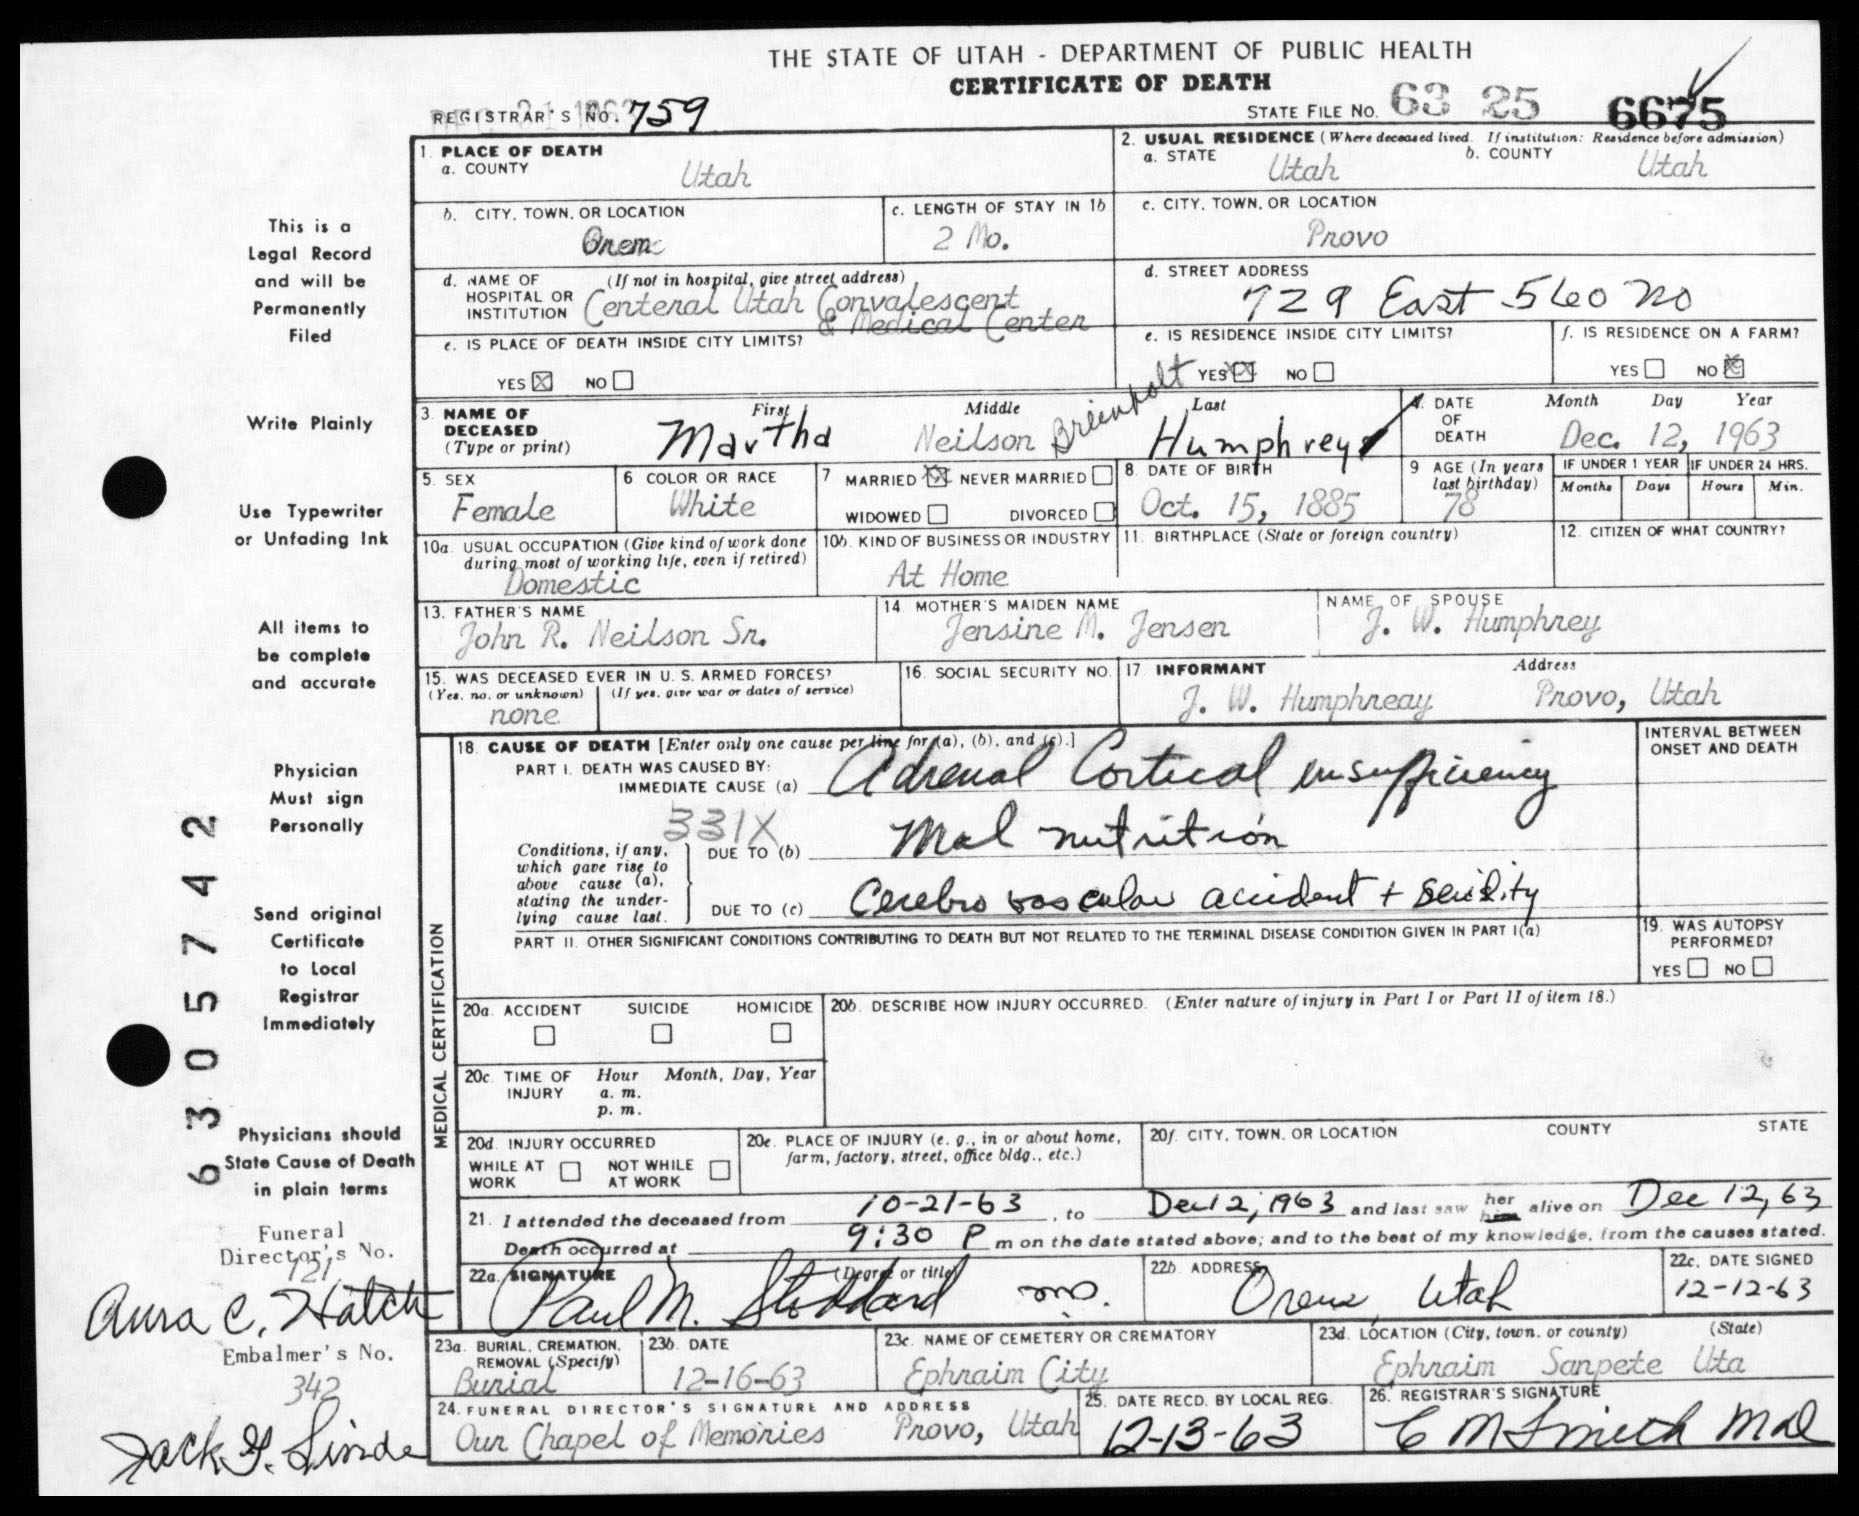 THE STATE OF UTAH - DEPARTMENT OF PUBLIC HEALTH
CERTIFICATE OF DEATH
REGISTRAR'S NO. 759
STATE FILE NO. 63 25 6675
1. PLACE OF DEATH
a. COUNTY
Utah
2. USUAL RESIDENCE (Where deceased lived. If institution: Residence before admission)
a. STATE Utah b. COUNTY Utah
b. CITY, TOWN, OR LOCATION
Orem
c. LENGTH OF STAY IN 1b
2 Mo.
c. CITY, TOWN, OR LOCATION
Provo
d. NAME OF HOSPITAL OR INSTITUTION (If not in hospital, give street address)
Centeral Utah Convalescent
& Medical Center
d. STREET ADDRESS
729 East 560 No
e. IS PLACE OF DEATH INSIDE CITY LIMITS?
YES NO
e. IS RESIDENCE INSIDE CITY LIMITS?
YES NO
f. IS RESIDENCE ON A FARM?
YES NO
3. NAME OF DECEASED (Type or print)
First Middle Last
Martha Neilson Breinholt Humphrey
4. DATE OF DEATH Month Day Year
Dec. 12, 1963
5. SEX
Female
6 COLOR OR RACE
White
7 MARRIED NEVER MARRIED
WIDOWED DIVORCED
8. DATE OF BIRTH
Oct. 15, 1885
9 AGE (In years last birthday)
78
IF UNDER 1 YEAR IF UNDER 24 HRS.
Months Days Hours Min.
10a. USUAL OCCUPATION (Give kind of work done during most of working life, even if retired)
Domestic
10b. KIND OF BUSINESS OR INDUSTRY
At Home
11. BIRTHPLACE (State or foreign country)
12. CITIZEN OF WHAT COUNTRY?
13. FATHER'S NAME
John R. Neilson Sr.
14 MOTHER'S MAIDEN NAME
Jensine M. Jensen
NAME OF SPOUSE
J. W. Humphrey
15. WAS DECEASED EVER IN U. S. ARMED FORCES?
(Yes, no, or unknown) (If yes, give war or dates of service)
none
16. SOCIAL SECURITY NO.
17 INFORMANT Address
J. W. Humphreay Provo, Utah
MEDICAL CERTIFICATION
18. CAUSE OF DEATH [Enter only one cause per line for (a), (b), and (c).]
PART I. DEATH WAS CAUSED BY:
IMMEDIATE CAUSE (a) Adrenal Cortical insufficiency
331X
Conditions, if any, which gave rise to above cause (a), stating the underlying cause last.
DUE TO (b) Mal nutrition
DUE TO (c) Cerebro vascular accident + Senility
INTERVAL BETWEEN ONSET AND DEATH
PART II. OTHER SIGNIFICANT CONDITIONS CONTRIBUTING TO DEATH BUT NOT RELATED TO THE TERMINAL DISEASE CONDITION GIVEN IN PART I(a)
19. WAS AUTOPSY PERFORMED?
YES NO
20a. ACCIDENT SUICIDE HOMICIDE
20b. DESCRIBE HOW INJURY OCCURRED. (Enter nature of injury in Part I or Part II of item 18.)
20c. TIME OF INJURY Hour Month, Day, Year
a. m.
p. m.
20d. INJURY OCCURRED
WHILE AT WORK NOT WHILE AT WORK
20e. PLACE OF INJURY (e. g., in or about home, farm, factory, street, office bldg., etc.)
20f. CITY, TOWN, OR LOCATION COUNTY STATE
21. I attended the deceased from 10-21-63, to Dec 12, 1963 and last saw her him alive on Dec 12, 63
Death occurred at 9:30 P m on the date stated above; and to the best of my knowledge, from the causes stated.
22a. SIGNATURE (Degree or title)
Paul M. Stoddard MD.
22b. ADDRESS
Orem, Utah
22c. DATE SIGNED
12-12-63
23a. BURIAL, CREMATION, REMOVAL (Specify)
Burial
23b. DATE
12-16-63
23c. NAME OF CEMETERY OR CREMATORY
Ephraim City
23d. LOCATION (City, town, or county) (State)
Ephraim Sanpete Uta
24. FUNERAL DIRECTOR'S SIGNATURE AND ADDRESS
Our Chapel of Memories Provo, Utah
25. DATE RECD. BY LOCAL REG.
12-13-63
26. REGISTRAR'S SIGNATURE
C M Smith
This is a
Legal Record
and will be
Permanently
Filed
Write Plainly
Use Typewriter
or Unfading Ink
All items to
be complete
and accurate
Physician
Must sign
Personally
Send original
Certificate
to Local
Registrar
Immediately
Physicians should
State Cause of Death
in plain terms
6305742
Funeral
Director's No.
121
Aura C. Hatch
Embalmer's No.
342
Jack F. Linde